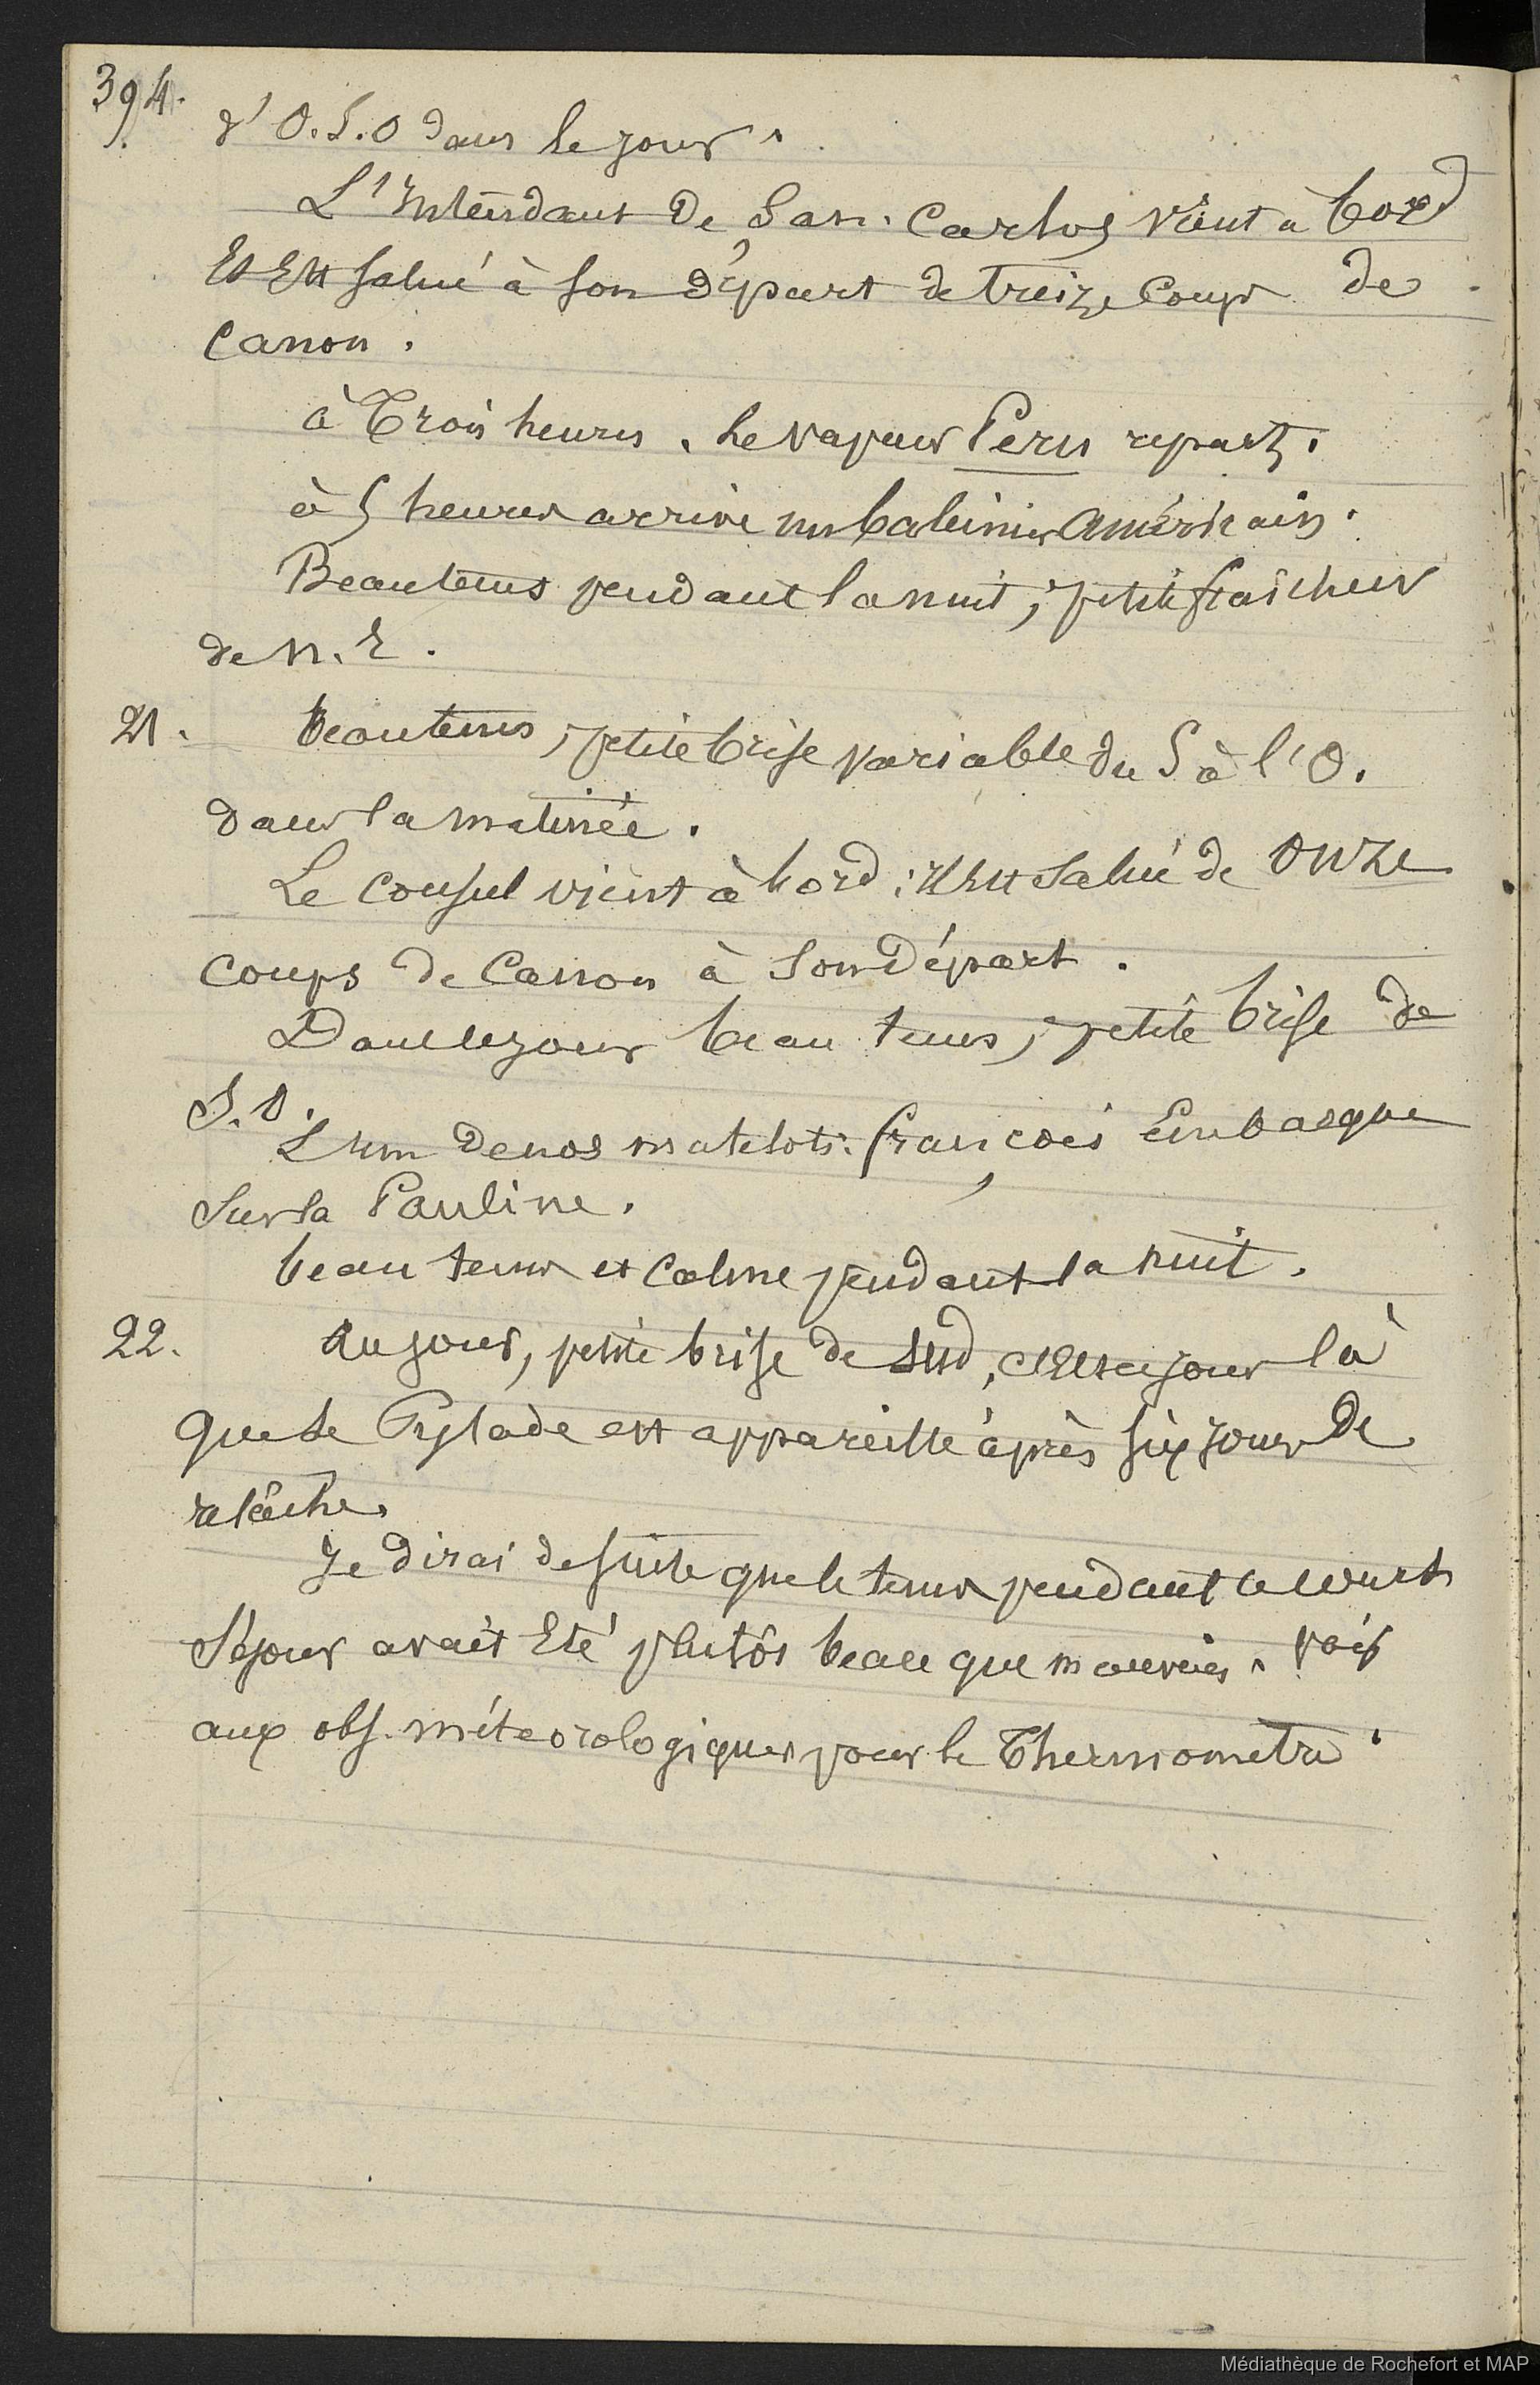 394.
d'O.S.O dans le jour.
L'Intendant de San. Carlos vient à bord
Et Est salué à son départ de treize Coups de
Canon.
à Trois heures. le vapeur Peru repart.
à 5 heures arrive un baleinier américain.
Beau tems pendant la nuit, petite fraîcheur
de N.E.
21. beau tems, petite brise variable du S à l'O.
dans la matinée.
Le Consul vient à bord; Il Est salué de onze
coups de Canon à son Départ.
Dans le jour beau tems, petite brise de
S.O.
L'um de nos matelots: françois Embarque
sur la Pauline.
beau tems et Calme pendant la nuit.
22. Au jour, petite brise de sud, C'Est ce jour là
que le Pylade est appareillé après six jours de
relâche.
Je dirai de suite que le tems pendant ce court
séjour avait Eté plutôt beau que mauvais. voir
aux obs. météorologiques pour le Thermomètre.
Médiathèque de Rochefort et MAP